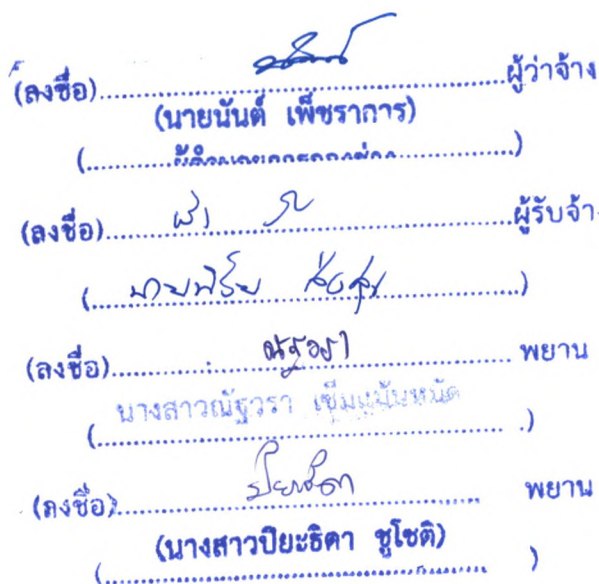 (ลงชื่อ)........................ผู้ว่าจ้าง
(นายนันต์ เพ็ชราการ)
(....ผู้อำนวยการกองช่าง....)
(ลงชื่อ)........................ผู้รับจ้าง
(....นาย....)
(ลงชื่อ)....ณัฐวรา....พยาน
(นางสาวณัฐวรา เข็มแน้นหนัด)
(ลงชื่อ)....ปิยะธิดา....พยาน
(นางสาวปิยะธิดา ชูโชติ)
(........................)